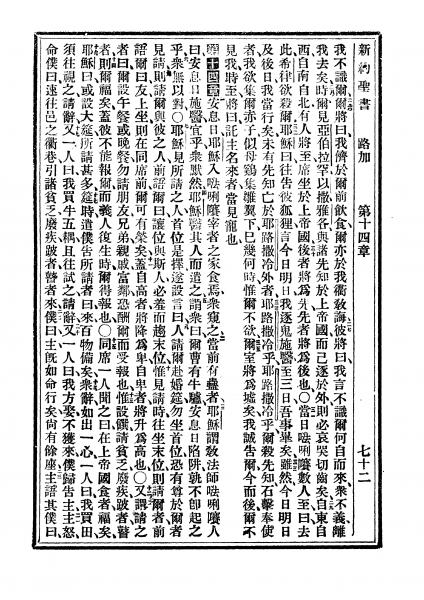 新約聖書　路加　第十四章　七十二
我不識爾爾將曰我儕於爾前飲食爾亦於我衢敎誨彼將曰我言不識爾何自而來衆不義離
我去矣時爾見亞伯拉罕以撒雅各與諸先知於上帝國而己逐於外則必哀哭切齒矣自東自
西自南自北有人將至席坐於上帝國後者將爲先先者將爲後也○當日𠵽唎㘔數人至曰去
此希律欲殺爾耶穌曰往告彼狐狸言今日明日我逐鬼施醫至三日吾事畢矣雖然今日明日
及後日我當行矣未有先知亡於耶路撒冷外者耶路撒冷乎耶路撒冷乎爾殺先知石擊奉使
者我欲集爾赤子似母鷄集雛翼下已幾何時惟爾不欲爾室將爲墟矣我誠告爾今而後爾不
見我時至將曰託主名來者當見寵也
第十四章 安息日耶穌入𠵽唎㘔宰者之家食焉衆窺之當前有蠱者耶穌謂敎法師𠵽唎㘔人
曰安息日施醫宜乎衆默然耶穌醫其人而遣之謂衆曰爾曹有牛驢安息日陷阱孰不卽起之
乎衆無以對○耶穌見所請之人首位是擇遂設言曰人請爾赴婚筵勿坐首位恐有尊於爾者
見請則請爾與彼之人前語爾曰讓位與斯人必羞而趨末位惟見請時往坐末位則請爾者前
語爾曰友上坐則在同席前爾可有榮矣蓋自高者將降爲卑自卑者將升爲高也○又謂請之
者曰爾設午餐或晚餐勿請朋友兄弟親戚富鄰恐酬爾而受報也惟設饌請貧乏廢疾跛者瞽
者則爾福矣蓋彼不能報爾而義人復生時爾得報也○同席一人聞之曰在上帝國食者福矣
耶穌曰或設大筵所請甚多筵時遣僕告所請者曰來百物備矣衆辭如出一心一人曰我買田
須往視之請辭又一人曰我買牛五耦且往試之請辭又一人曰我方娶不獲來僕歸告主主怒
命僕曰速往邑之衢巷引諸貧乏廢疾跛者瞽者來僕曰主旣如命行矣尚有餘座主語其僕曰